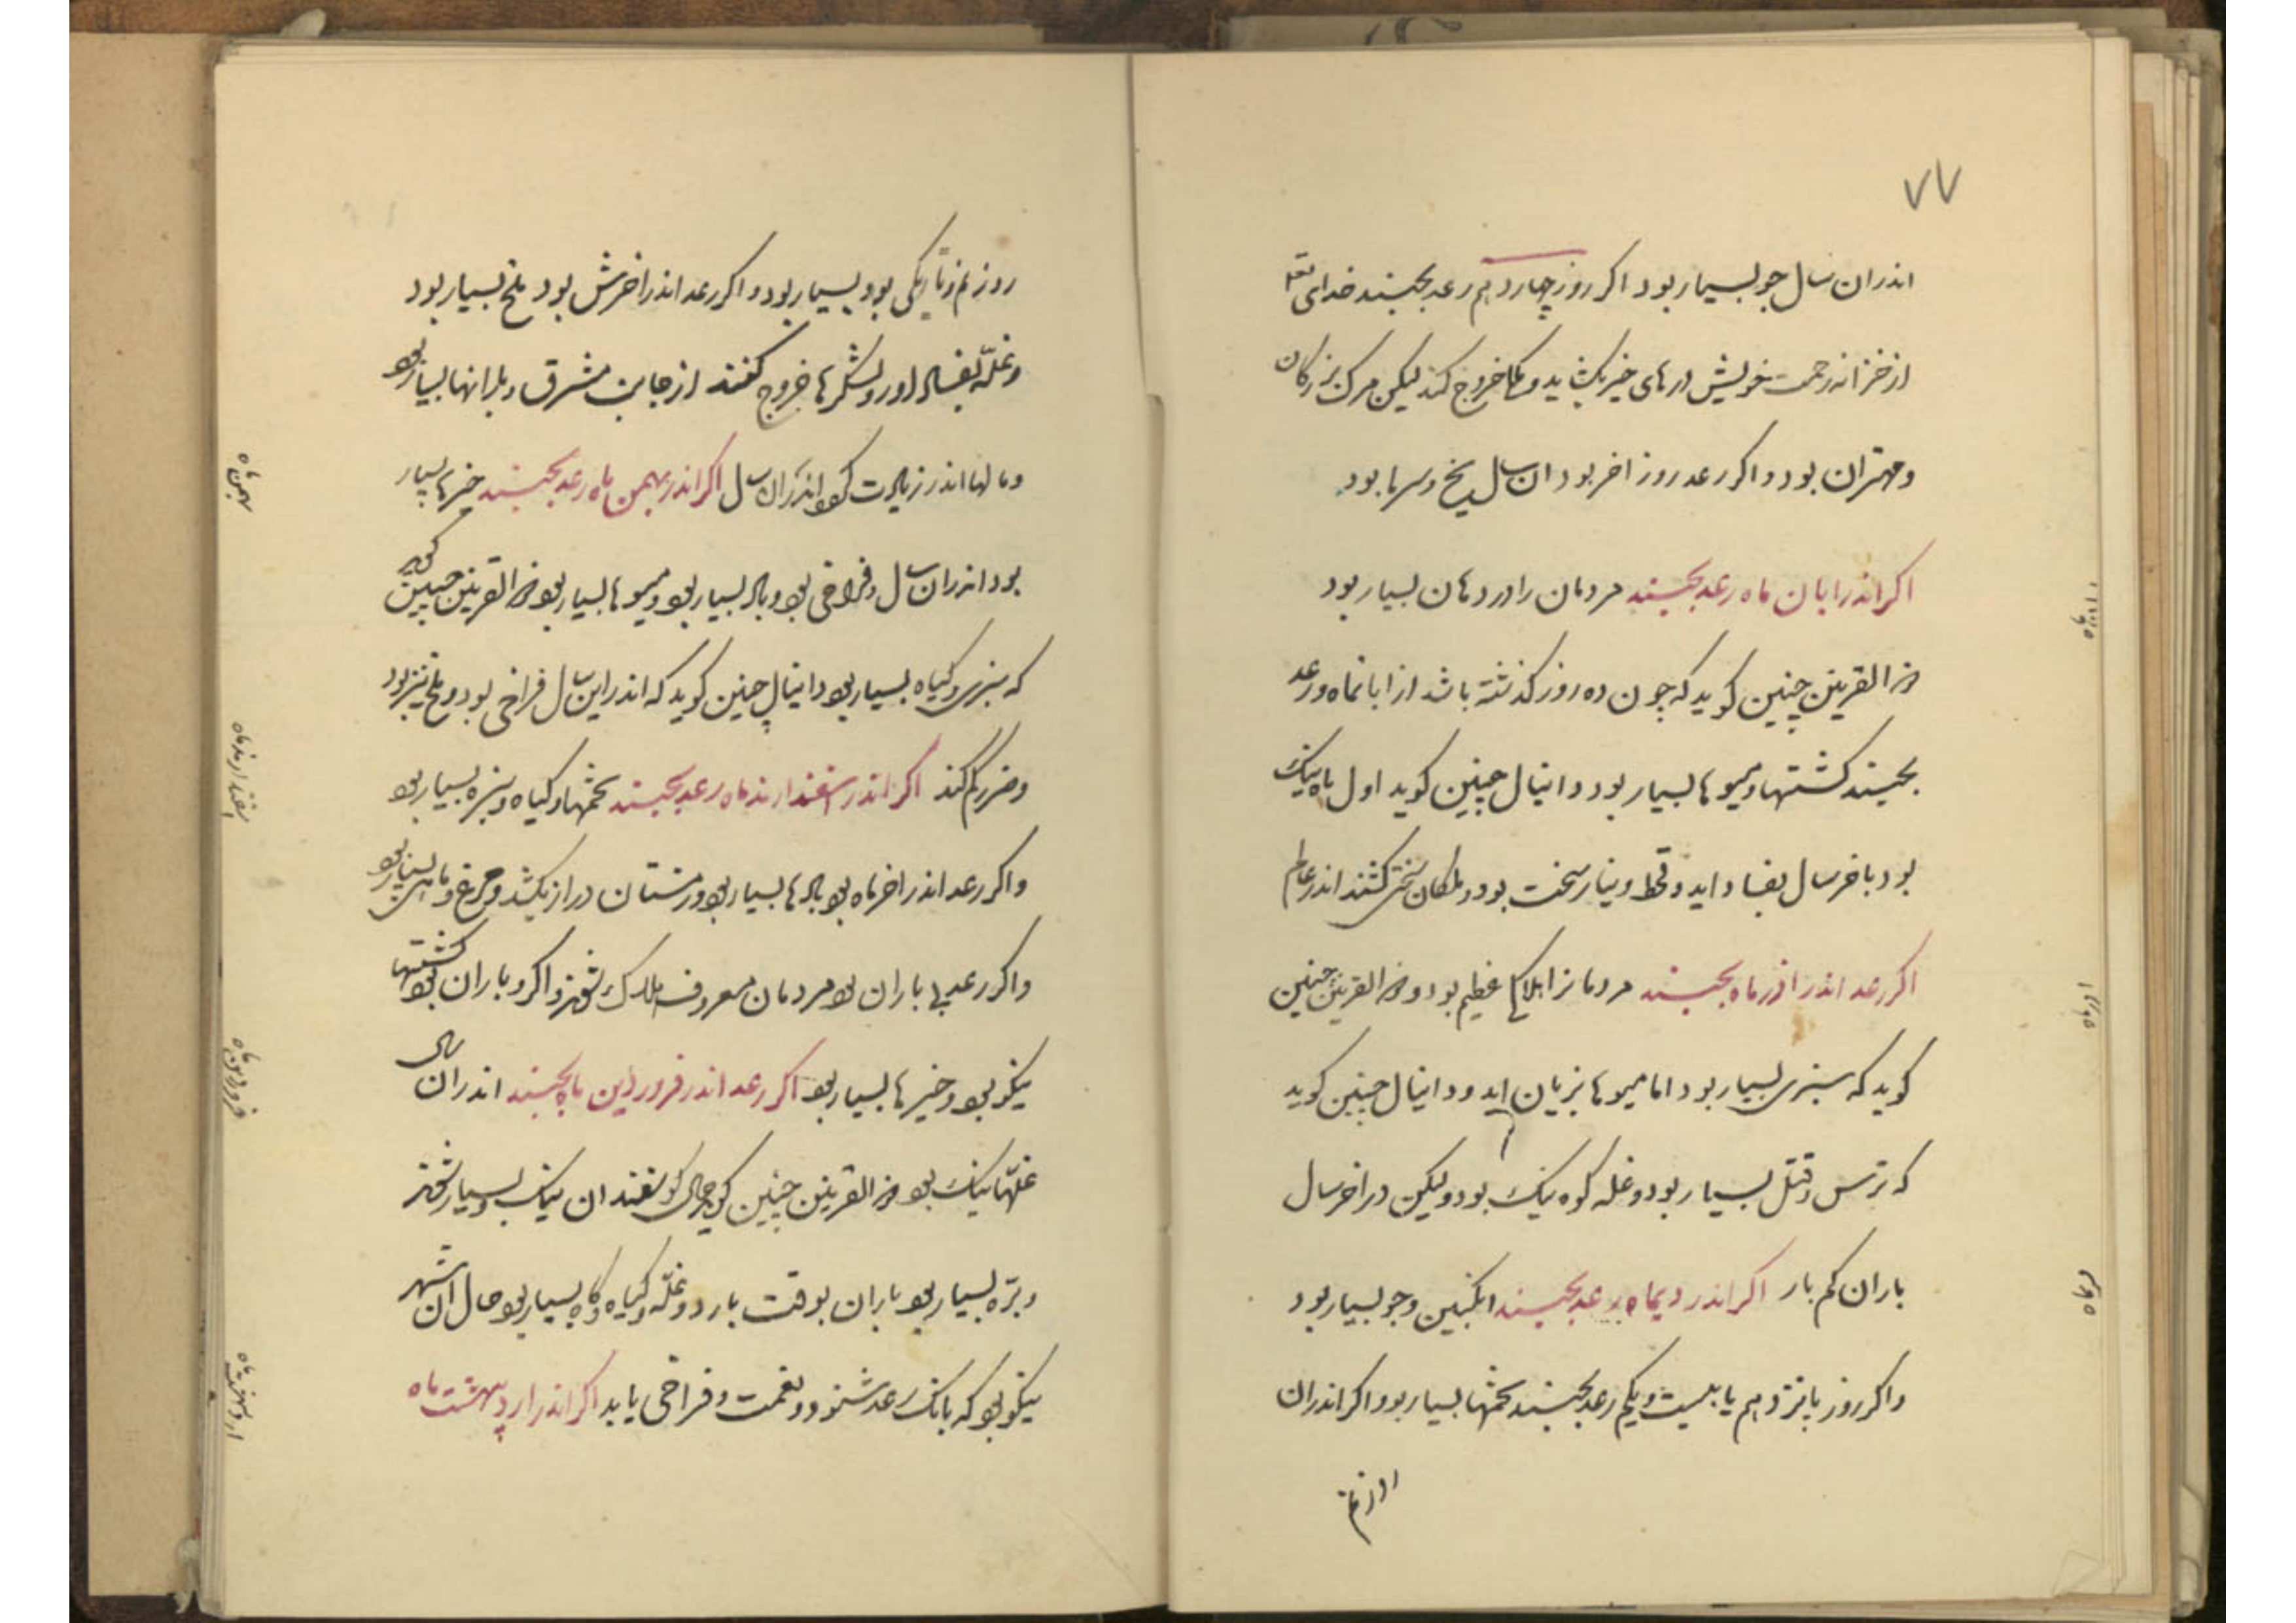 ۷۷
اندران سال جو بسیار بود اکر روز چهاردهم رعد بجنبند خدای تعه
از خزانه رحمت خویش درهای خیر بکشاید و خروج کند لیکن مرک بزرکان
ومهتران بود و اکر رعد روز اخر بود ان سال یخ و سرما بود
اکر اندر ابان ماه رعد بجنبند مردمان را درد هان بسیار بود
ذو القرینن چنین کوید که چون ده روز کذشته باشد از ابانماه و رعد
بجنبند کشتها و میوها بسیار بود دانیال چنین کوید اول ماه نیک
بود باخر سال بفساد اید و قحط و نیاز سخت بود و ملکان سختی کشند اندر عالم
اکر رعد اندر اذر ماه بجنبند مردمانرا هلاکی عظیم بود و ذو القرینن چنین
کوید که سبزی بسیار بود اما میوها بزیان اید و دانیال چنین کوید
که ترس و قتل بسیار بود و غله کوه نیک بود ولیکن در اخر سال
باران کم بار اکر اندر دیماه رعد بجنبند انکبین و جو بسیار بود
و اکر روز پانزدهم یا بیست و یکم رعد بجنبند تخمها بسیار بود و اکر اندران
ابانماه
اذرماه
دیماه
روز نم و تاریکی بود بسیار بود و اکر رعد اندر اخرش بود ملخ بسیار بود
و غلّه بفساد اورد و لشکرها خروج کنند از جانب مشرق و بارانها بسیار بود
و مالها اندر زیادت بود اندران سال اکر اندر بهمن ماه رعد بجنبند خیرها بسیار
بود اندران سال و فراخی بود و باد بسیار بود و میوها بسیار بود ذو القرینن چنین کوید
که سبزی و کیاه بسیار بود دانیال چنین کوید که اندر این سال فراخی بود و ملخ نیز بود
و ضرر کم کند اکر اندر اسفندارمذماه رعد بجنبند تخمها و کیاه و سبزه بسیار بود
و اکر رعد اندر اخر ماه بود بادها بسیار بود و زمستان دراز بکشد و مرغ و ماهی بسیار بود
و اکر رعد بی باران بود مردمان معروف هلاک شوند و اکر و باران بود کشتها
نیکو بود و خیرها بسیار بود اکر رعد اندر فروردین ماه بجنبند اندران سال
غلّها نیک بود ذو القرینن چنین کوید حال کوسفندان نیک و بسیار شوند
و برّه بسیار بود باران بوقت بارد و غلّه و کیاه و کاه بسیار بود حال ان شهر
نیکو بود که بانک رعد شنود و نعمت و فراخی یابد اکر اندر اردیبهشت ماه
بهمن ماه
اسفندارمذماه
فروردین ماه
اردیبهشت ماه